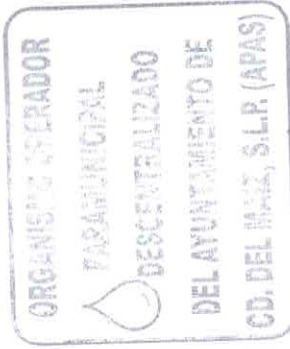 ORGANISMO OPERADOR
PARAMUNICIPAL
DESCENTRALIZADO
DEL AYUNTAMIENTO DE
CD. DEL MAIZ, S.L.P. (APAS)